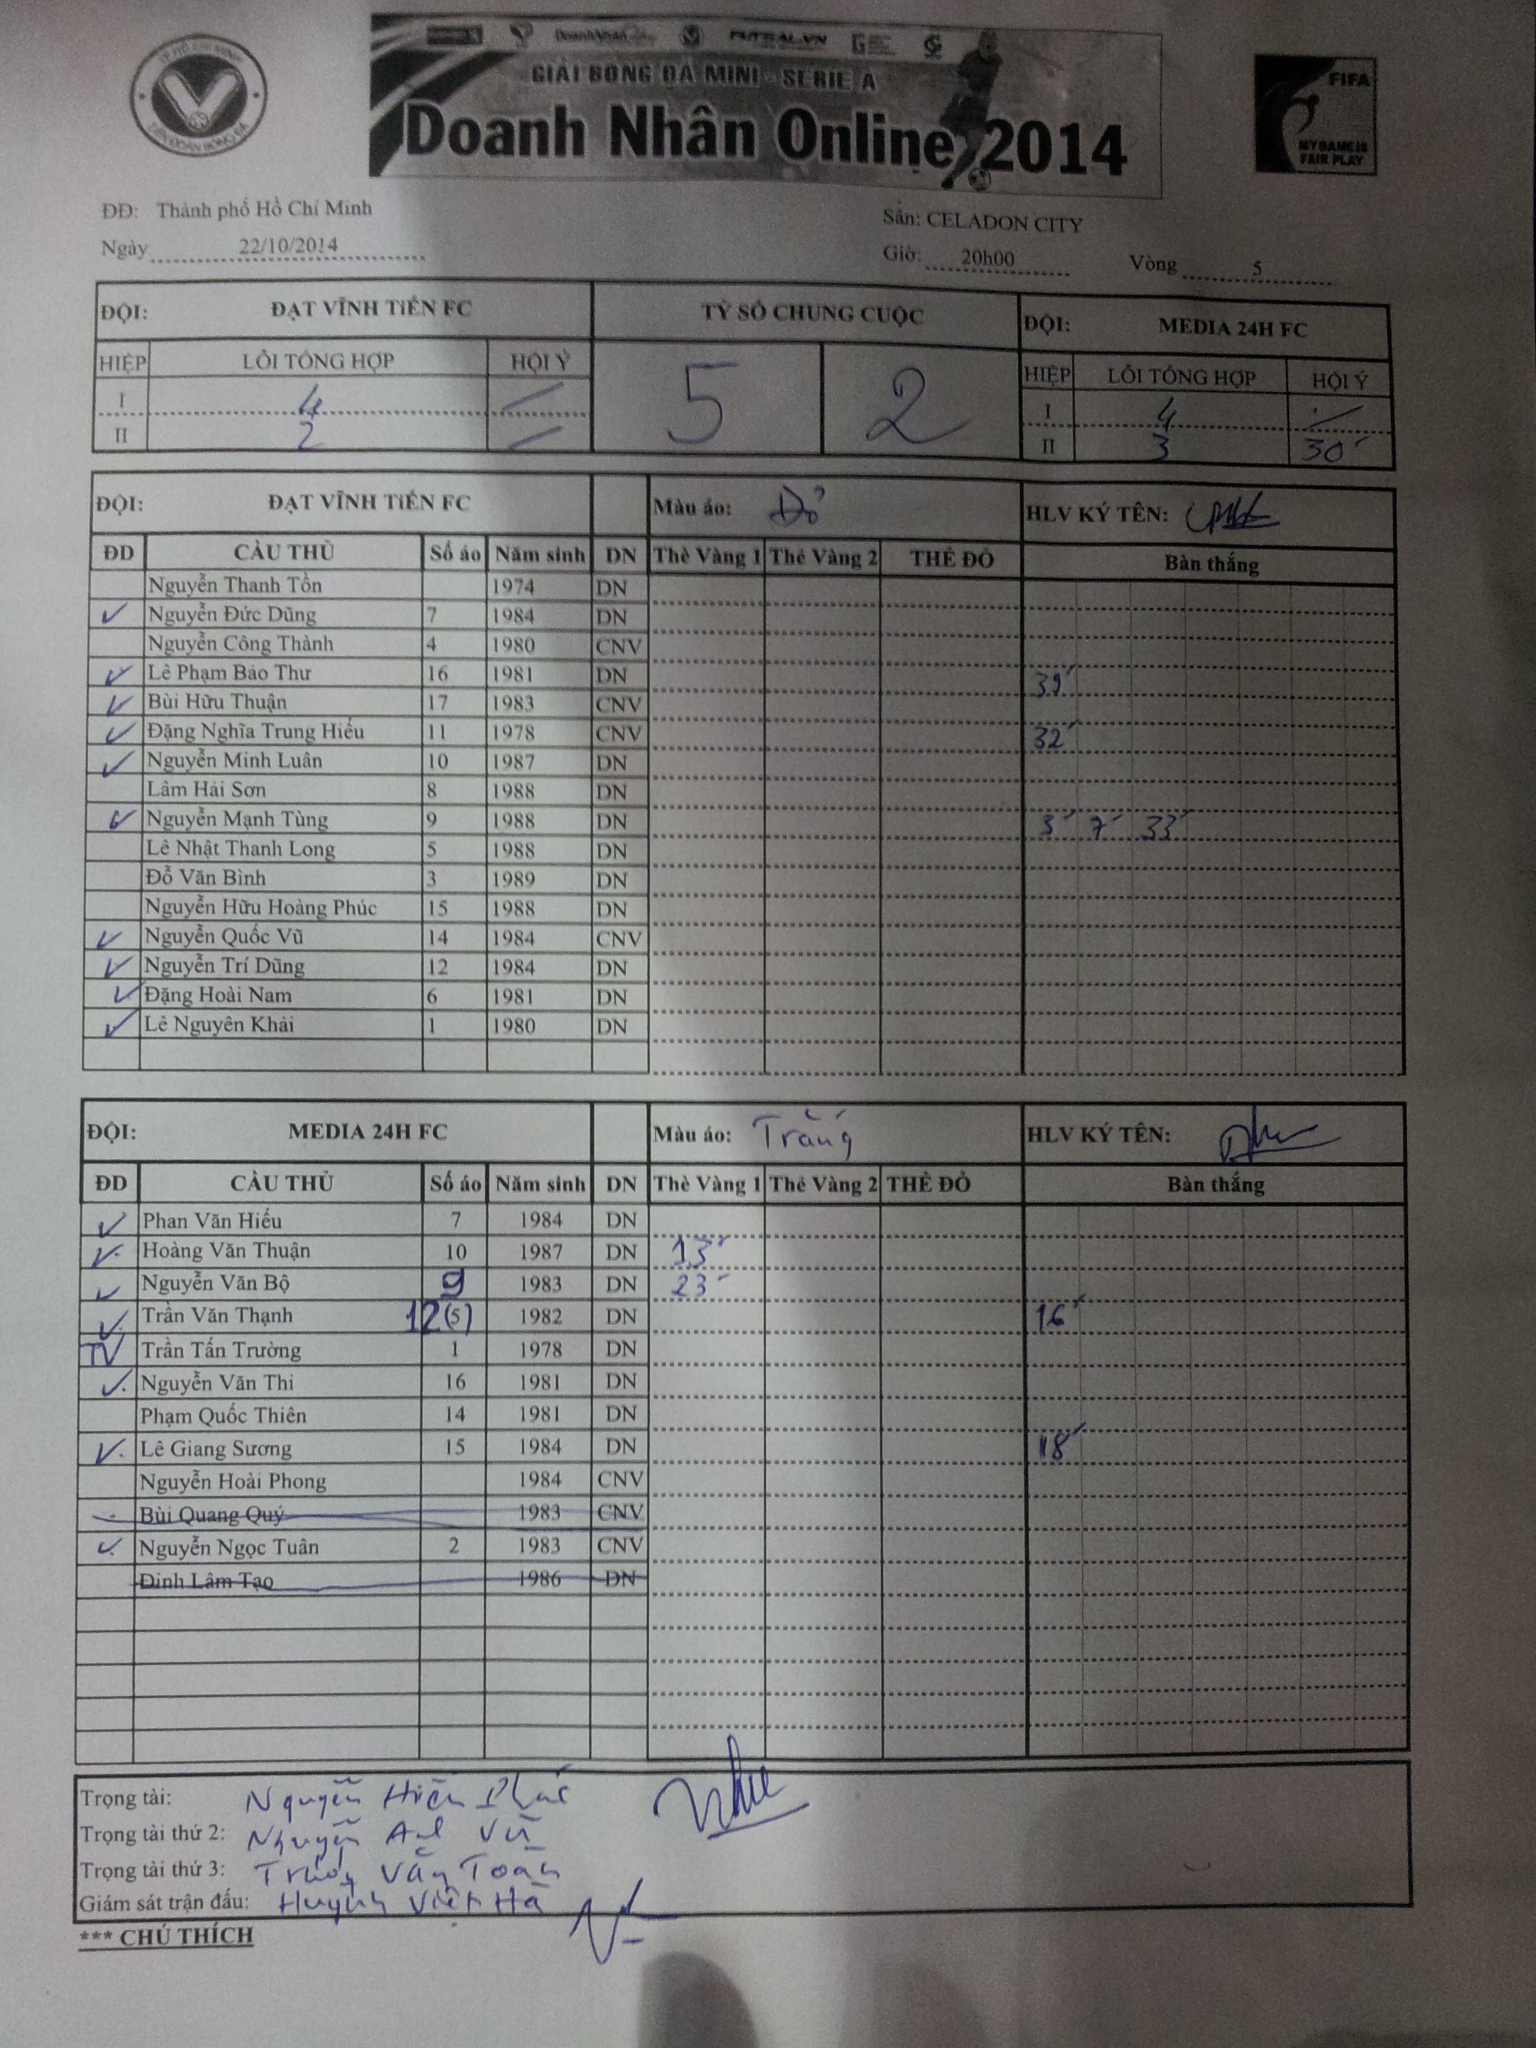 TP HỒ CHÍ MINH
LIÊN ĐOÀN BÓNG ĐÁ
FUTSAL.VN
GIẢI BÓNG ĐÁ MINI - SERIE A
Doanh Nhân Online 2014
FIFA
MY GAME IS
FAIR PLAY
ĐĐ: Thành phố Hồ Chí Minh
Sân: CELADON CITY
Ngày 22/10/2014
Giờ: 20h00 Vòng 5
ĐỘI: ĐẠT VĨNH TiẾN FC TỶ SỐ CHUNG CUỘC ĐỘI: MEDIA 24H FC
HIỆP LỖI TỔNG HỢP HỘI Ý 5 2 HIỆP LỖI TỔNG HỢP HỘI Ý
I 4 I 4
II 2 II 3 30'
ĐỘI: ĐẠT VĨNH TiẾN FC Màu áo: Đỏ HLV KÝ TÊN:
ĐD CẦU THỦ Số áo Năm sinh DN Thẻ Vàng 1 Thẻ Vàng 2 THẺ ĐỎ Bàn thắng
Nguyễn Thanh Tồn 1974 DN
✓ Nguyễn Đức Dũng 7 1984 DN
Nguyễn Công Thành 4 1980 CNV
✓ Lê Phạm Bảo Thư 16 1981 DN 39'
✓ Bùi Hữu Thuận 17 1983 CNV
✓ Đặng Nghĩa Trung Hiếu 11 1978 CNV 32'
✓ Nguyễn Minh Luân 10 1987 DN
Lâm Hải Sơn 8 1988 DN
✓ Nguyễn Mạnh Tùng 9 1988 DN 3' 7' 33'
Lê Nhật Thanh Long 5 1988 DN
Đỗ Văn Bình 3 1989 DN
Nguyễn Hữu Hoàng Phúc 15 1988 DN
✓ Nguyễn Quốc Vũ 14 1984 CNV
✓ Nguyễn Trí Dũng 12 1984 DN
✓ Đặng Hoài Nam 6 1981 DN
✓ Lê Nguyên Khải 1 1980 DN
ĐỘI: MEDIA 24H FC Màu áo: Trắng HLV KÝ TÊN:
ĐD CẦU THỦ Số áo Năm sinh DN Thẻ Vàng 1 Thẻ Vàng 2 THẺ ĐỎ Bàn thắng
✓ Phan Văn Hiếu 7 1984 DN
✓ Hoàng Văn Thuận 10 1987 DN 13'
✓ Nguyễn Văn Bộ 9 1983 DN 23'
✓ Trần Văn Thạnh 12 (5) 1982 DN 16'
TV Trần Tấn Trường 1 1978 DN
✓ Nguyễn Văn Thi 16 1981 DN
Phạm Quốc Thiên 14 1981 DN
✓ Lê Giang Sương 15 1984 DN 18'
Nguyễn Hoài Phong 1984 CNV
Bùi Quang Quý 1983 CNV
✓ Nguyễn Ngọc Tuân 2 1983 CNV
Đinh Lâm Tạo 1986 DN
Trọng tài: Nguyễn Hiền
Trọng tài thứ 2: Nguyễn Vũ
Trọng tài thứ 3: Văn Toàn
Giám sát trận đấu: Huỳnh Việt Hà
*** CHÚ THÍCH